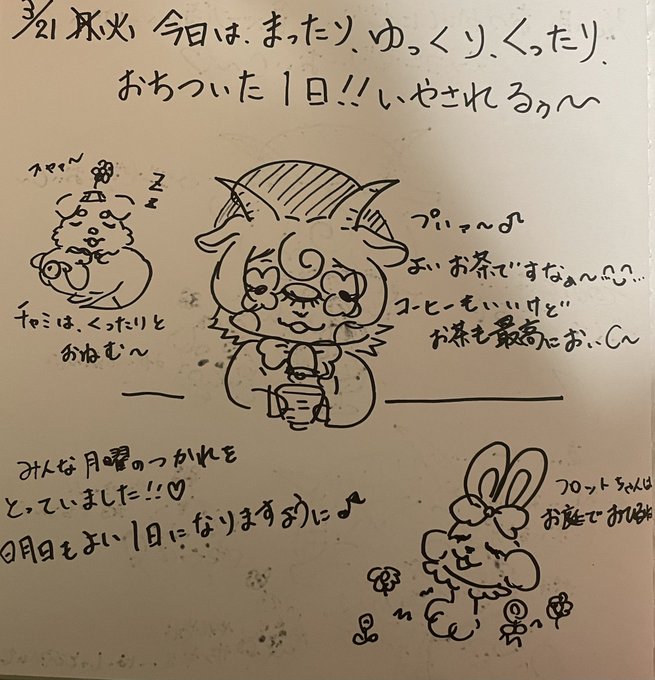 3/21 火 今日は、まったり、ゆっくり、くったり、
おちついた1日!!いやされるぅ〜
スヤァ〜
z
z
チャミは、くったりと
おねむ〜
ぷぃァ〜♪
よいお茶ですなぁ〜
コーヒーもいいけど
お茶も最高においC〜
みんな月曜のつかれを
とっていました!!♡
明日もよい1日になりますように♪
フロットちゃんは
お庭でおひるね